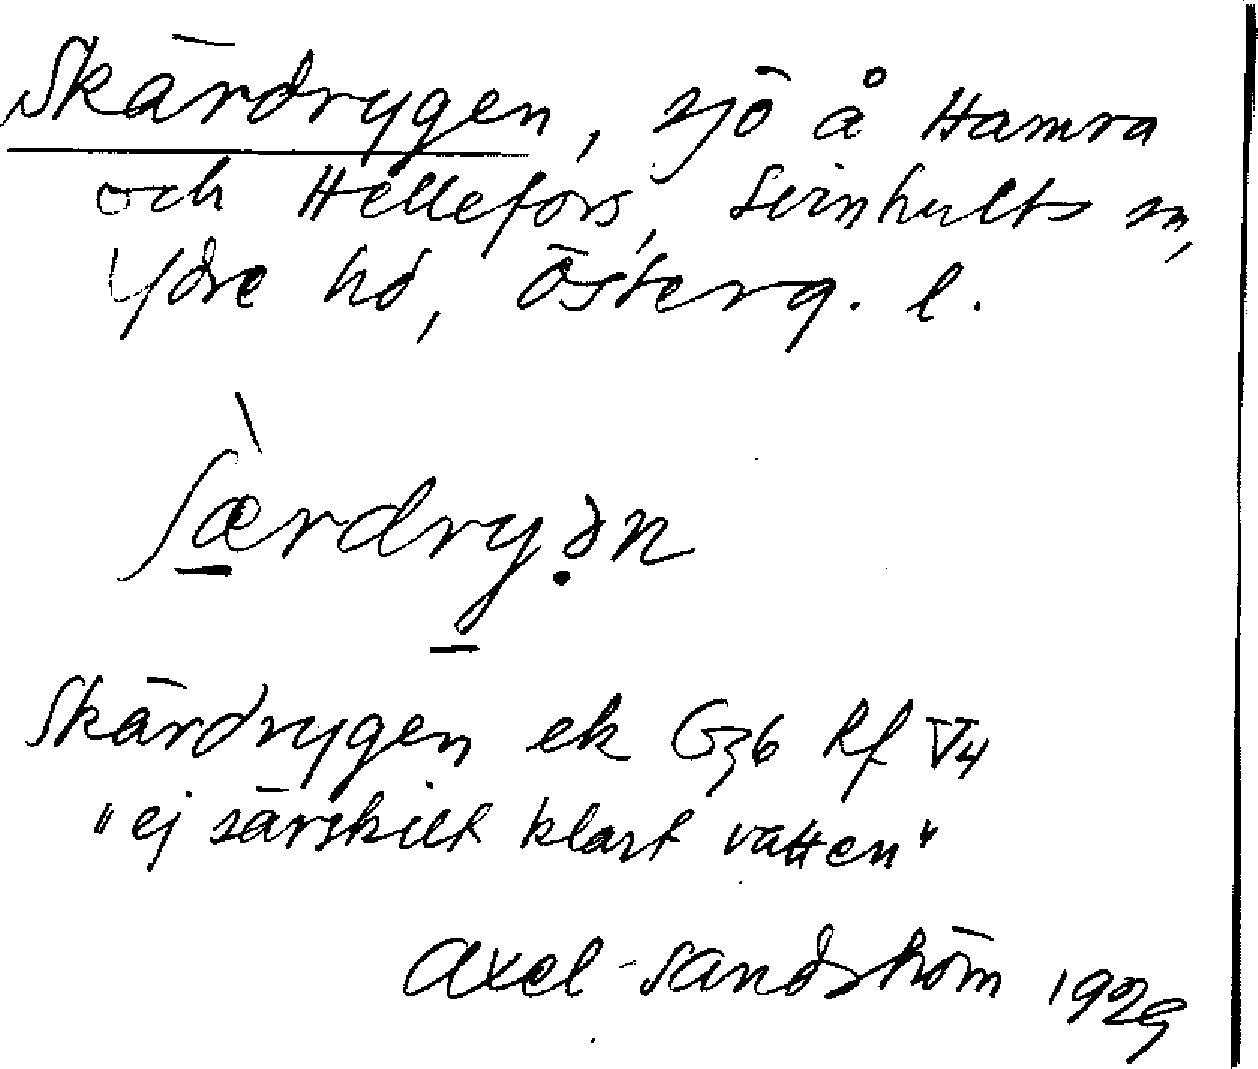 Skärdrygen, sjö å Hamra
och Hellefors, Svinhults sn,
Ydre hd, Österg. l.
ʃærdryən
Skärdrygen ek G36 Rf V4
"ej särskilt klart vatten"
Axel Sandström 1929